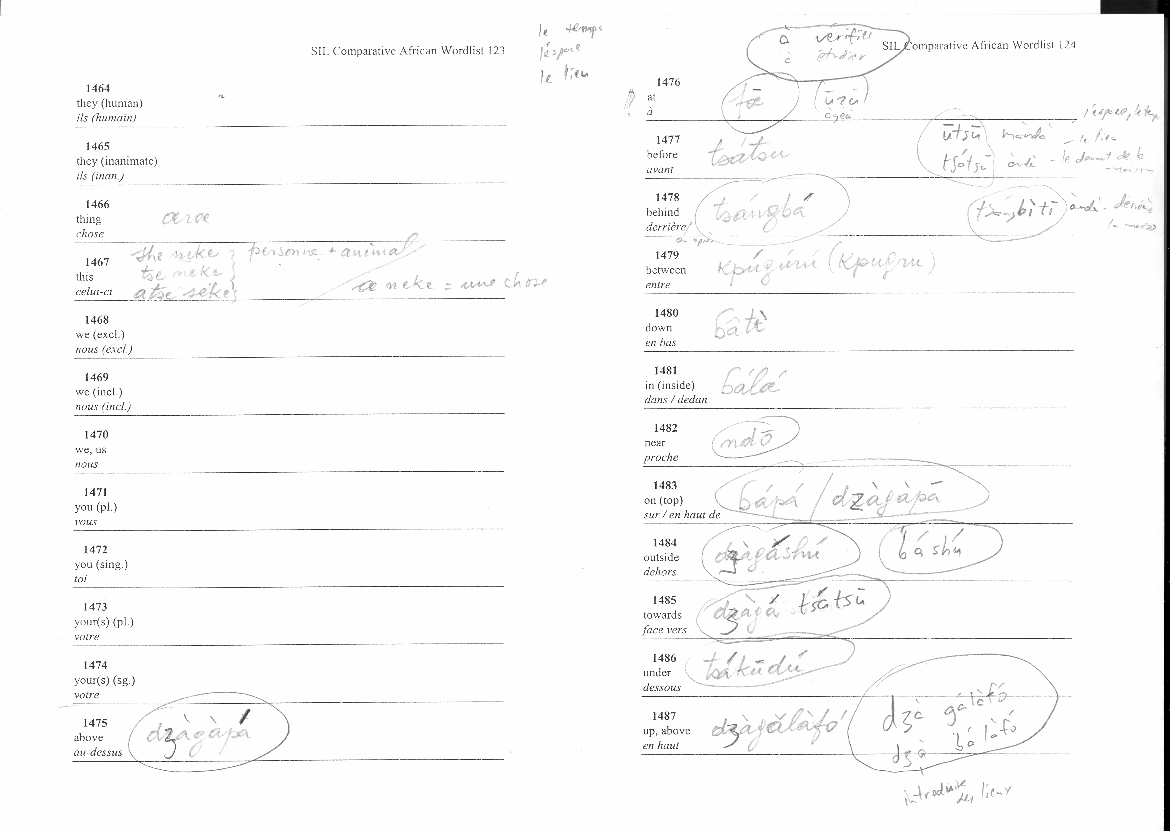 SIL Comparative African Wordlist 123
le temps
l'espace
le lieu
1464
they (human)
ils (humain)
1465
they (inanimate)
ils (inan.)
1466
thing
chose
1467
this
celui-ci
personne + animal
neke = une chose
1468
we (excl.)
nous (excl.)
1469
we (incl.)
nous (incl.)
1470
we, us
nous
1471
you (pl.)
vous
1472
you (sing.)
toi
1473
your(s) (pl.)
votre
1474
your(s) (sg.)
votre
1475
above
au-dessus
dzàgàpá
à vérifier
à étudier
SIL Comparative African Wordlist 124
1476
at
à
1477
before
avant
tsátsu
ūtsū
le lieu
le devant de la
1478
behind
derrière/
tsángbá
1479
between
entre
kpúgúrú (kpugru)
1480
down
en bas
bâtì
1481
in (inside)
dans / dedan
1482
near
proche
ndō
1483
on (top)
sur / en haut de
bápá / dzàgàpā
1484
outside
dehors
dzàgáshú
báshú
1485
towards
face vers
dzàgá tsátsū
1486
under
dessous
tsákūdú
1487
up, above
en haut
dzàgǎlàfó
dzà gálàfó
dzà bálàfó
introduire
des lieux